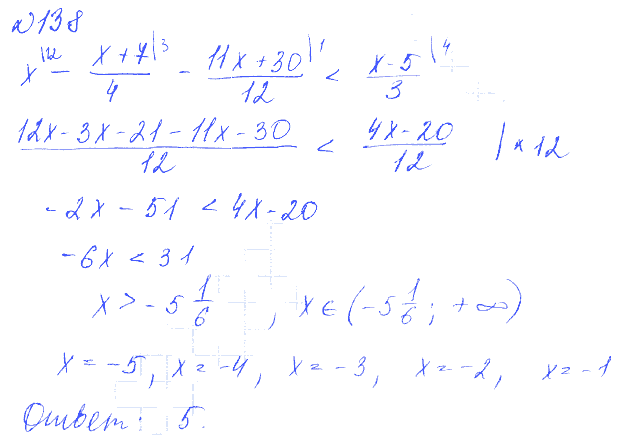 №138
x|12 - (x+7)/4|3 - (11x+30)/12|1 < (x-5)/3|4
(12x-3x-21-11x-30)/12 < (4x-20)/12 | × 12
-2x - 51 < 4x-20
-6x < 31
x > -5 1/6 , x ∈ (-5 1/6; +∞)
x = -5, x = -4, x = -3, x = -2, x = -1
Ответ: 5.